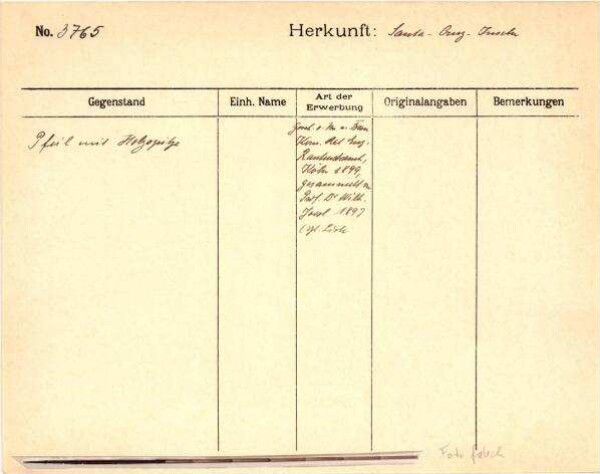 No. 3765
Herkunft: Santa-Cruz-Inseln
Gegenstand
Einh. Name
Art der Erwerbung
Originalangaben
Bemerkungen
Pfeil mit Holzspitze
Gesch. v. Hn. u. Frau
Kom. Rat Eug.
Rautenstrauch,
Köln 1899,
gesammelt v.
Prof. Dr. Wilh.
Joest 1897
Foto falsch